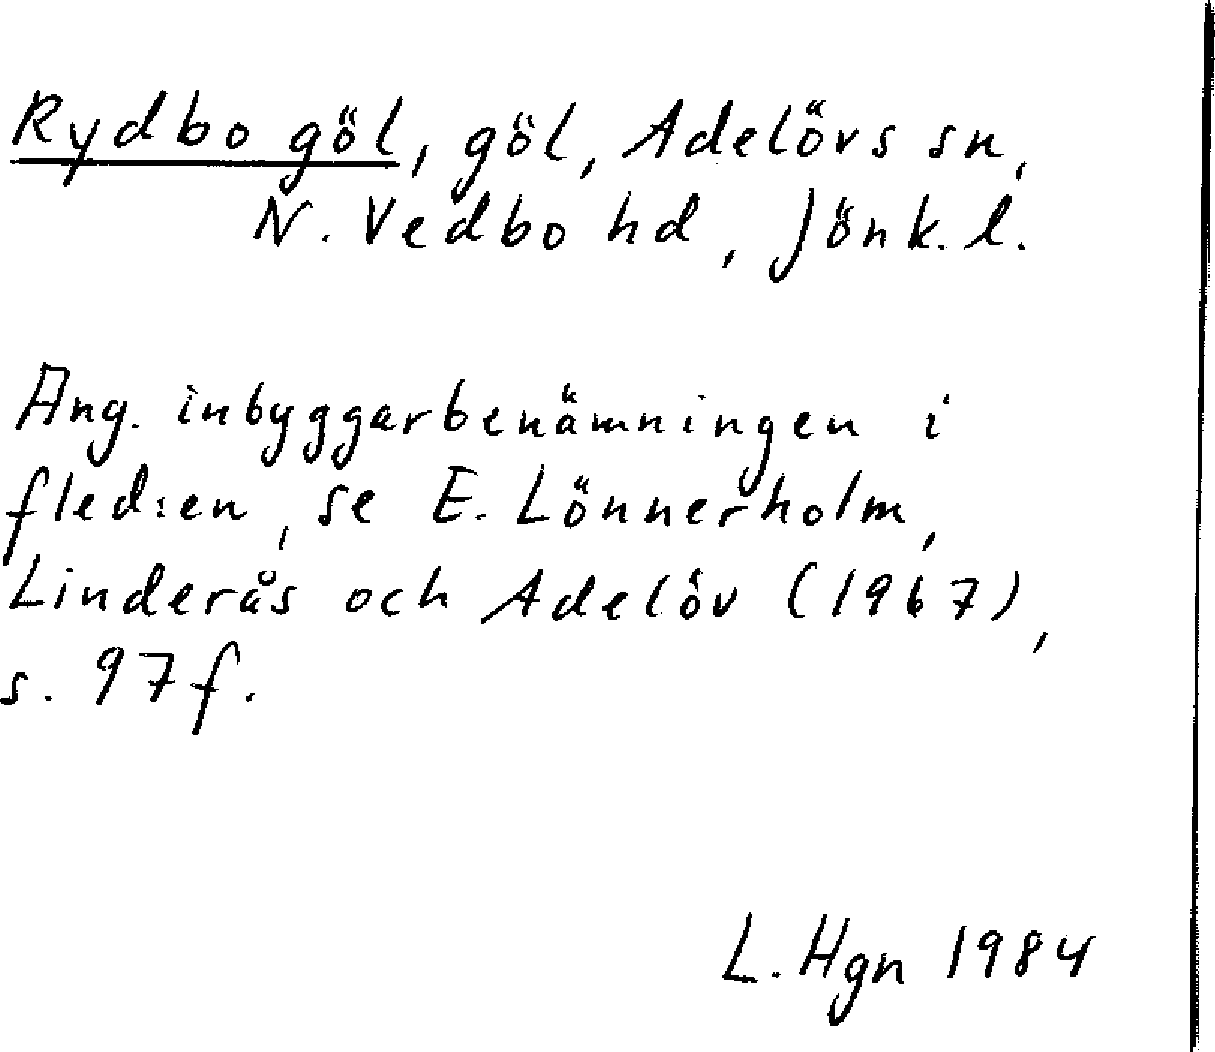 Rydbo göl, göl, Adelövs sn,
N. Vedbo hd, Jönk. l.
Ang. inbyggarbenämningen i
fled:en, se E. Lönnerholm,
Linderås och Adelöv (1967),
s. 97f.
L. Hgn 1984